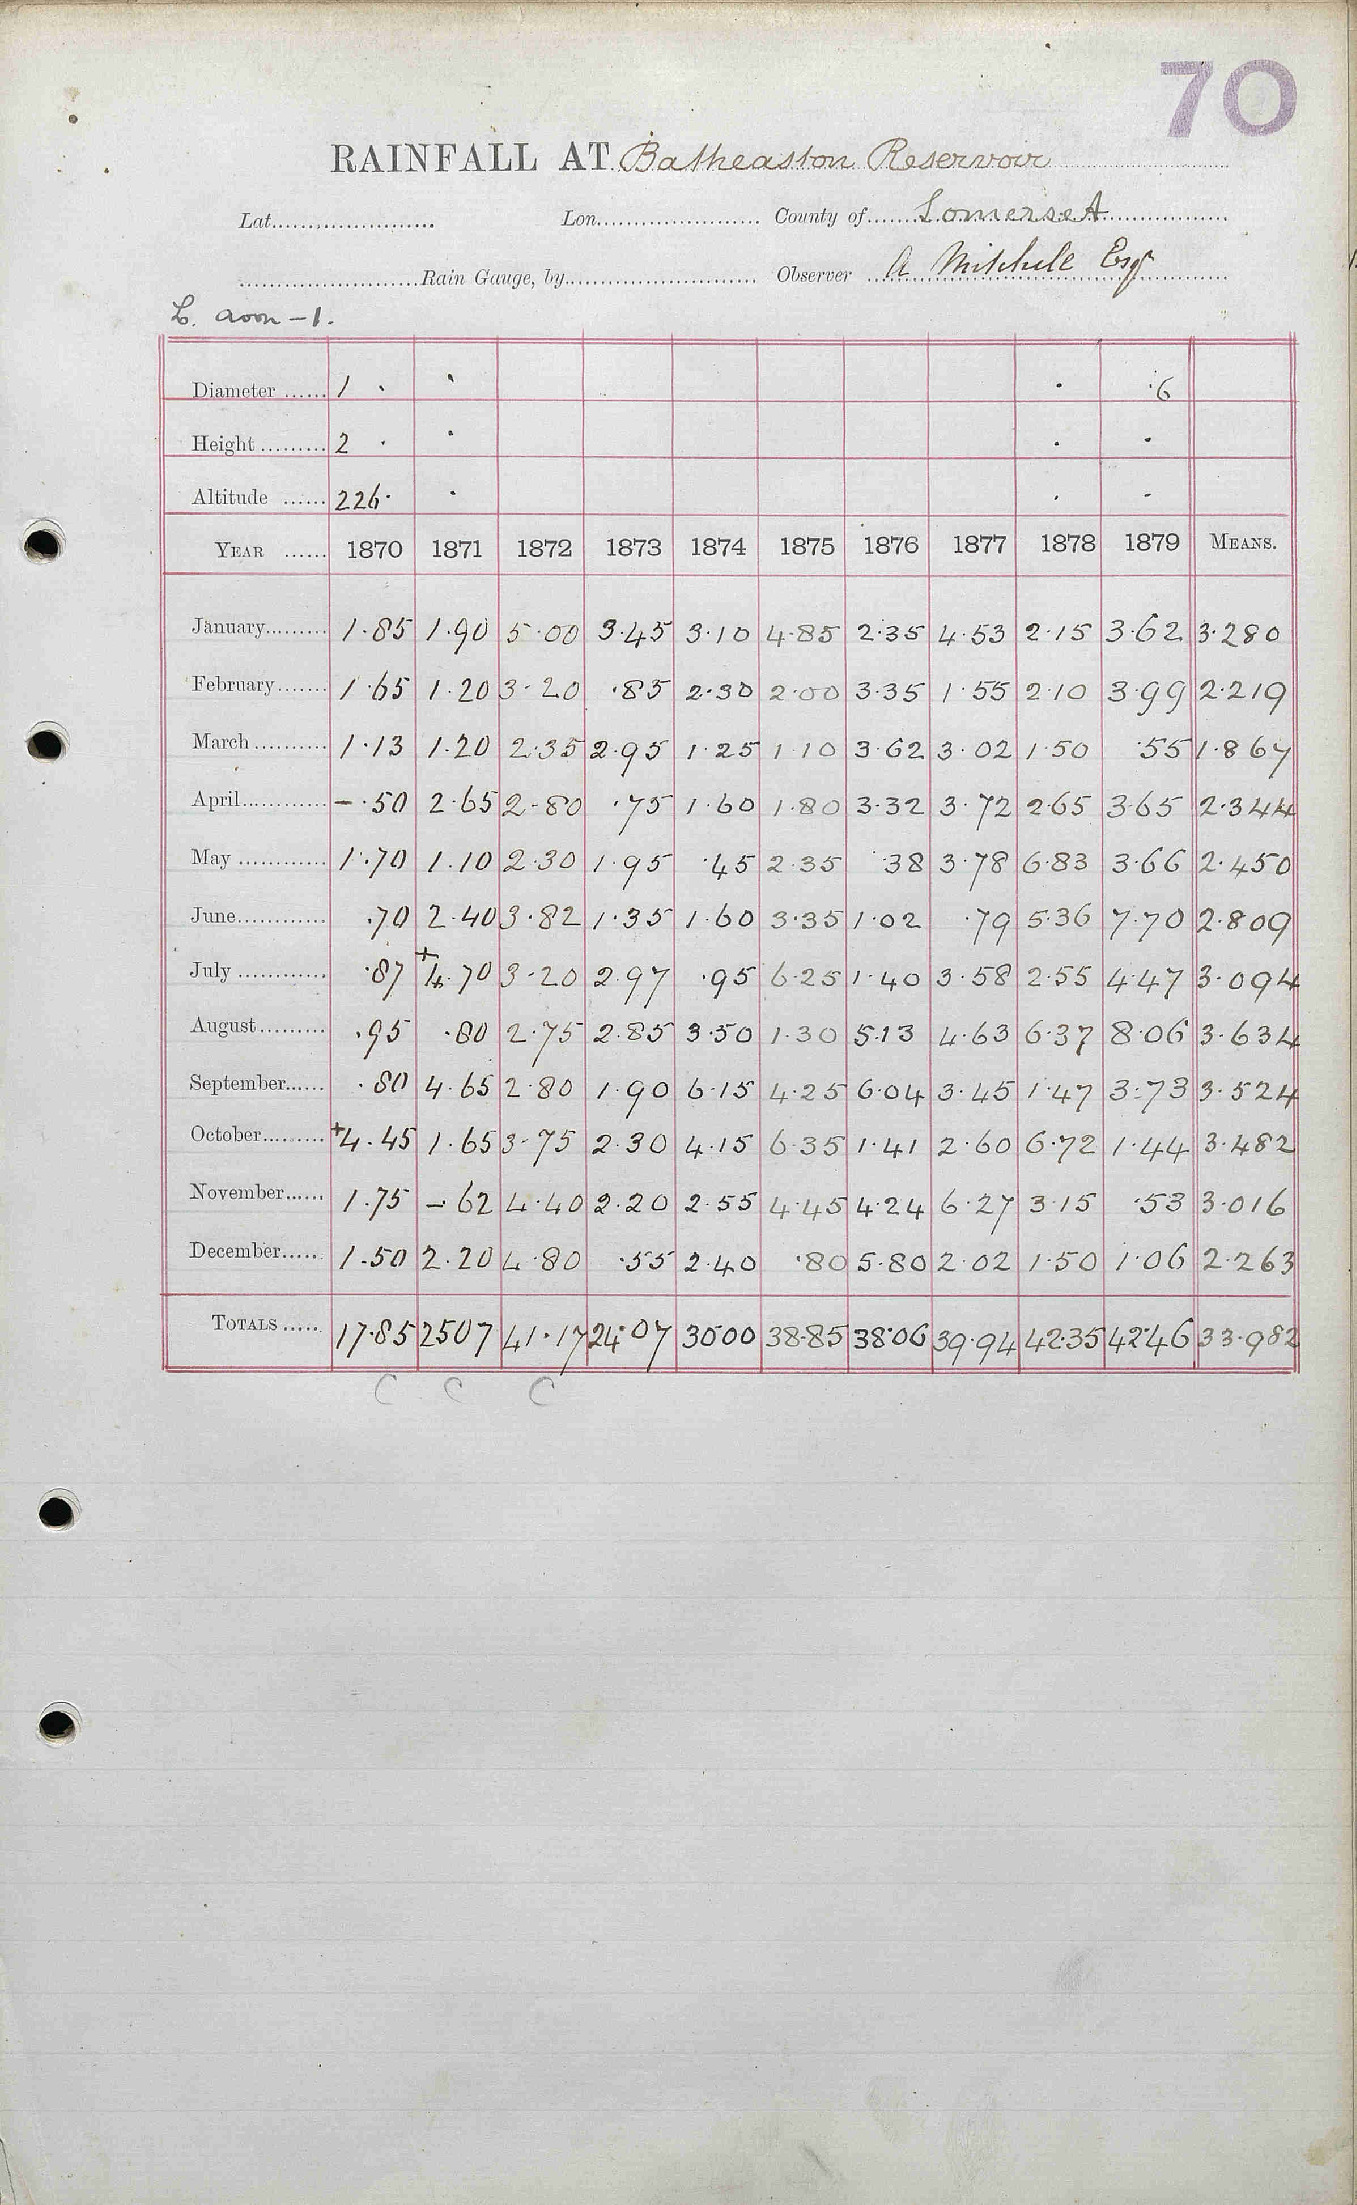 70
RAINFALL AT Batheaston Reservoir
Lat. Lon. County of Somerset
Rain Gauge, by Observer A Mitchell Esqr
L. Avon - 1.
Diameter 1 · · · ·6
Height 2 · · · ·
Altitude 226· · · ·
YEAR 1870 1871 1872 1873 1874 1875 1876 1877 1878 1879 MEANS.
January 1·85 1·90 5·00 3·45 3·10 4·85 2·35 4·53 2·15 3·62 3·280
February 1·65 1·20 3·20 ·85 2·30 2·00 3·35 1·55 2·10 3·99 2·219
March 1·13 1·20 2·35 2·95 1·25 1·10 3·62 3·02 1·50 ·55 1·867
April -·50 2·65 2·80 ·75 1·60 1·80 3·32 3·72 2·65 3·65 2·344
May 1·70 1·10 2·30 1·95 ·45 2·35 ·38 3·78 6·83 3·66 2·450
June ·70 2·40 3·82 1·35 1·60 3·35 1·02 ·79 5·36 7·70 2·809
July ·87 +4·70 3·20 2·97 ·95 6·25 1·40 3·58 2·55 4·47 3·094
August ·95 ·80 2·75 2·85 3·50 1·30 5·13 4·63 6·37 8·06 3·634
September ·80 4·65 2·80 1·90 6·15 4·25 6·04 3·45 1·47 3·73 3·524
October +4·45 1·65 3·75 2·30 4·15 6·35 1·41 2·60 6·72 1·44 3·482
November 1·75 -·62 4·40 2·20 2·55 4·45 4·24 6·27 3·15 ·53 3·016
December 1·50 2·20 4·80 ·55 2·40 ·80 5·80 2·02 1·50 1·06 2·263
TOTALS 17·85 2507 41·17 24·07 30·00 38·85 38·06 39·94 42·35 42·46 33·982
C C C